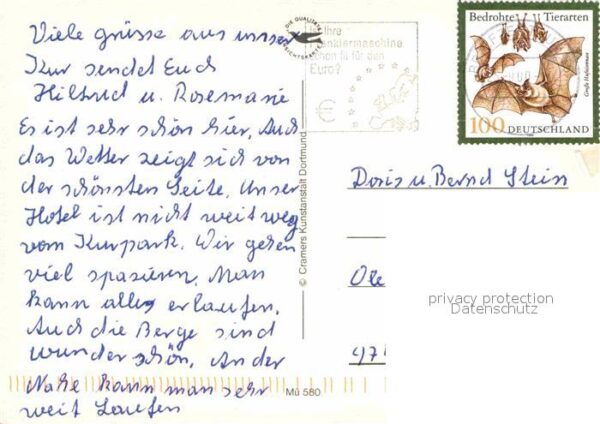 Viele grüsse aus unser
Kur sendet Euch
Hiltrud u. Rosemarie
Es ist sehr schön hier, Auch
das Wetter zeigt sich von
der schönsten Seite. Unser
Hotel ist nicht weit weg
vom Kurpark. Wir gehen
viel spazieren, Man
kann alles erlaufen.
Auch die Berge sind
wunder schön. An der
Nahe kann man sehr
weit Laufen
© Cramers Kunstanstalt Dortmund
Mü 580
DIE QUALITÄTS
ANSICHTSKARTE
Ihre
maschine
schon fit für den
Euro?
€
Bedrohte Tierarten
Große Hufeisennase
100 DEUTSCHLAND
Doris u. Bernd Stein
privacy protection
Datenschutz
97